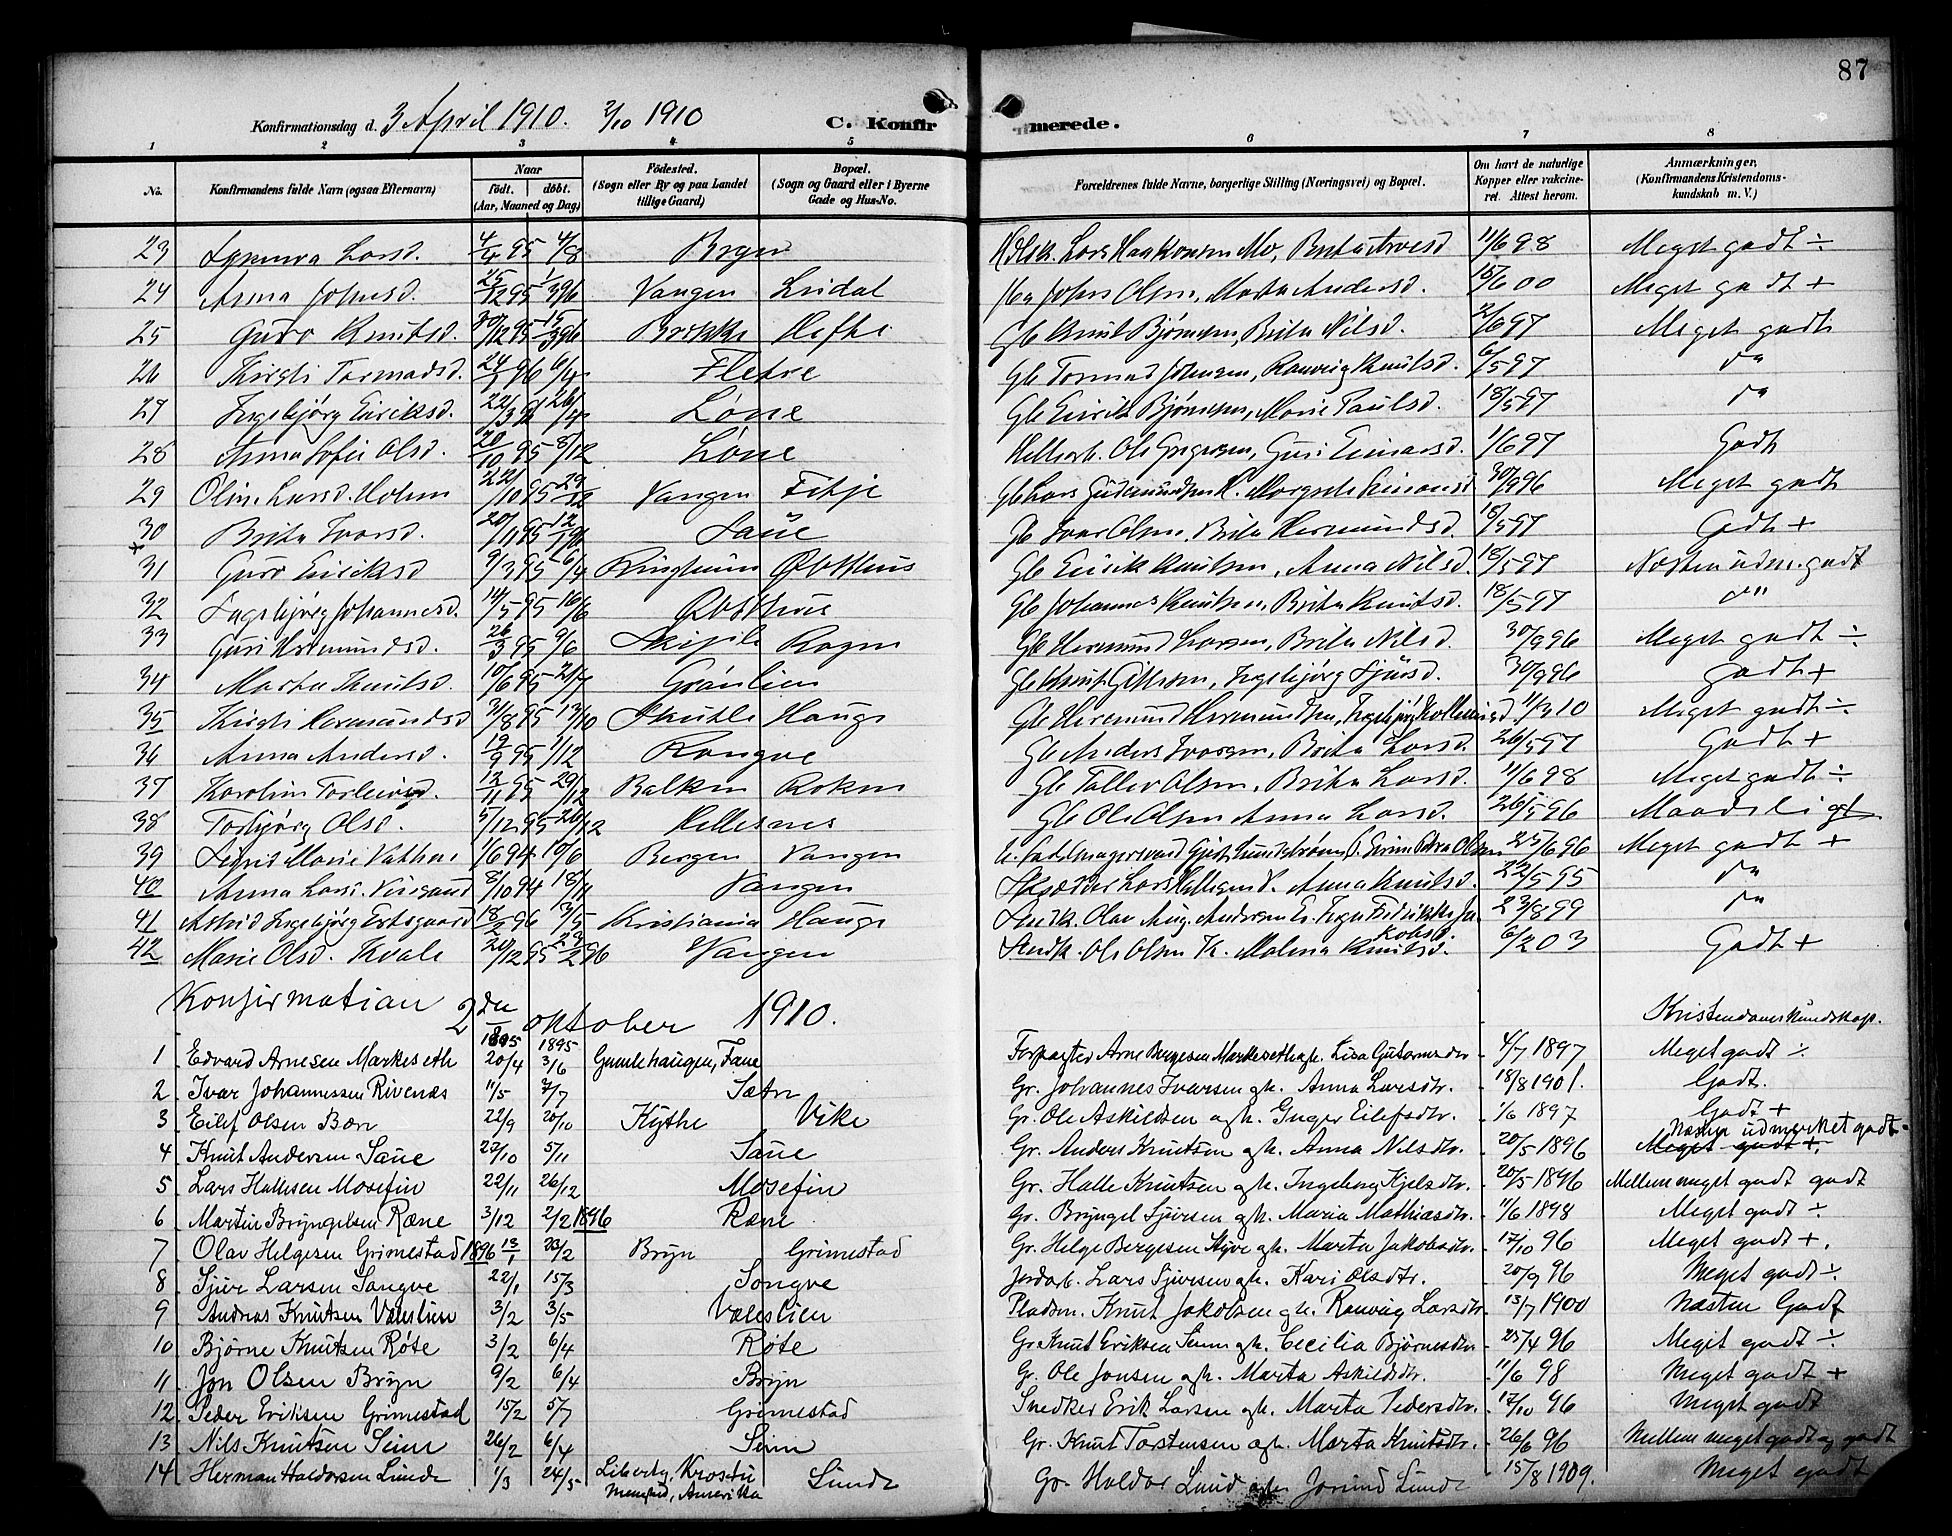 87
Konfirmationsdag d. 3 April 1910. 2/10 1910 C. Konfirmerede.
1 2 3 4 5 6 7 8
No. Konfirmandens fulde Navn (ogsaa Efternavn) Naar født. døbt. (Aar, Maaned og Dag) Fødested. (Sogn eller By og paa Landet tillige Gaard) Bopæl. (Sogn og Gaard eller i Byerne Gade og Hus-No. Forældrenes fulde Navne, borgerlige Stilling (Næringsvei) og Bopæl. Om havt de naturlige Kopper eller vakcineret. Attest herom. Anmærkninger, (Konfirmandens Kristendomskundskab m. V.)
23 Larsd. 4/4 95 4/8 Bryn Lars Haakonsen Mo, Brita 11/6 98 Meget godt ÷
24 Anna Johnsd. 25/12 95 1/3 96 Vangen Lridal John Olsen, Marta Andersd. 15/6 00 Meget godt +
25 Guro Knutsd. 30/12 95 15/3 96 Brekke Hefte Gb Knut Bjørnsen, Brita Nilsd. 2/6 97 Meget godt
26 Kirsti Tormodsd. 24/3 96 6/4 Fletre Gb Tormod Johnsen, Ranveig Knutsd. 6/5 97 do
27 Ingebjørg Eiriksd. 22/3 26/4 Løne Gb Eirik Bjørnsen, Marie Paulsd. 18/5 97 do
28 Anna Sofie Olsd. 20/10 95 8/12 Løne Ole Gregersen, Guri Einarsd. 1/6 97 Godt
29 Oline Larsd. Holm 22/10 95 29/12 Vangen Fitje Gb Lars Gudmundsen H. Margrete 30/9 96 Meget godt
30 Brita Ivarsd. 20/11 95 12/1 96 Saue Gb Ivar Olsen, Brita Hermundsd. 18/5 97 Godt +
31 Guro Eiriksd 9/3 95 6/4 Ringheim Øvsthus Gb Eirik Knutsen, Anna Nilsd. 18/5 97 Næsten udm. godt
32 Ingebjørg Johannesd. 14/5 95 16/6 Øvsthus Gb Johannes Knutsen, Brita Knutsd. 18/5 97 do
33 Guri Hermundsd. 26/3 95 9/6 Skiple Rogn Gb Hermund Larsen, Brita Nilsd. 30/9 96 Meget godt ÷
34 Marta Knutsd. 10/6 95 21/7 Grønlien Gb Knut Gittsen, Ingebjørg Sjursd. 30/9 96 Godt +
35 Kirsti Hermundsd 3/8 95 13/10 Skutle Hauge Gb Hermund Hermundsen, Ingebjørg 11/3 10 Meget godt ÷
36 Anna Andersd. 19/9 95 1/12 Rongve Gb Anders Ivarsen, Brita Larsd. 26/5 97 Godt +
37 Karolina Torleivsd. 12/11 95 29/12 Balken Rokne Gb Tollev Olsen, Brita Larsd. 11/6 98 Meget godt ÷
38 Torbjørg Olsd. 5/12 95 26/12 Hellesnes Gb Ole Olsen Anna Larsd. 26/5 96 Maadeligt
39 Sigrid Marie Vathne 1/6 94 10/6 Bergen Vangen 25/6 96 Meget godt +
40 Anna Larsd. Vinsand 8/10 94 18/11 Vangen Skrædder Lars Hallesen V. Anna Knutsd. 22/5 95 do
41 Astrid Ingebjørg Ertsgaard 18/2 96 3/5 Kristiania Hauge Snedk. Olav Aug. Andersen E. Inga Fredrikke Jakobsd. 23/8 99 do
42 Marie Olsd. Kvale 20/12 95 23/2 96 Vangen Snedk. Ole Olsen K. Malena Knutsd. 6/2 03 Godt +
Konfirmation 2den oktober 1910. Kristendomskundskap.
1 Edvard Arnesen Markeseth 1895 20/4 1895 3/6 Gamlehaugen, Fane Forpagter Arne Bergesen Markeseth gh. Lisa Gutormsdtr 4/7 1897 Meget godt ÷
2 Ivar Johannessen Rivenæs 11/5 7/7 Sætr Gr. Johannes Ivarsen gh. Anna Larsdtr. 18/8 1901. Godt.
3 Eilef Olsen Bøen 22/9 20/10 Kythe Vike Gr. Ole Askildsen ogh. Inger Eilefsdtr. 1/6 1897 Godt +
4 Knut Andersen Saue 23/10 5/11 Saue Gr. Anders Knutsen ogh. Anna Nilsdtr. 20/5 1896 Meget godt +. Næsten udmerket godt.
5 Lars Hallesen Mosefin 22/11 26/12 Mosefin Gr. Halle Knutsen ogh. Ingeborg Kjelsdtr. 20/5 1896 Mellem meget godt godt
6 Martin Bryngelsen Ræne 3/12 2/2 1896 Ræne Gr. Bryngel Sjursen ogh. Maria Mathiasdtr. 11/6 1898 Meget godt ÷
7 Olav Helgesen Grimestad 1896 13/1 23/2 Bryn Grimestad Gr. Helge Bergesen Styve gh. Marta Jakobsdtr. 17/10 96 Meget godt +.
8 Sjur Larsen Songve 22/1 15/3 Songve Jordarb. Lars Sjursen gh. Kari Olsdtr. 20/9 96 Meget godt ÷.
9 Andreas Knutsen Væleslien 3/2 3/5 Væleslien Pladsm. Knut Jakobsen gh. Ranveig Larsdtr 13/7 1900 Næsten Godt
10 Bjørne Knutsen Røte 3/2 6/4 Røte Gr. Knut Eriksen gh. Cecilia Bjørnesdtr 23/4 96 Meget godt ÷
11 Jon Olsen Bryn 9/2 6/4 Bryn Gr. Ole Jonsen ogh. Marta Askildsdtr. 11/6 98 Meget godt +
12 Peder Eriksen Grimestad 15/2 5/7 Grimestad Snedker Erik Larsen ogh. Marta Pedersdtr. 17/10 96 Meget godt
13 Nils Knutsen Seim 26/2 6/4 Seim Gr. Knut Torstensen ogh. Marta Knutsdtr. 26/6 96 Mellem meget godt og godt
14 Herman Haldorsen Lunde 1/3 24/5 Liberty, Amerikka Lunde Gr. Haldor Lund ogh. Jorund Lunde 15/8 1909. Meget godt